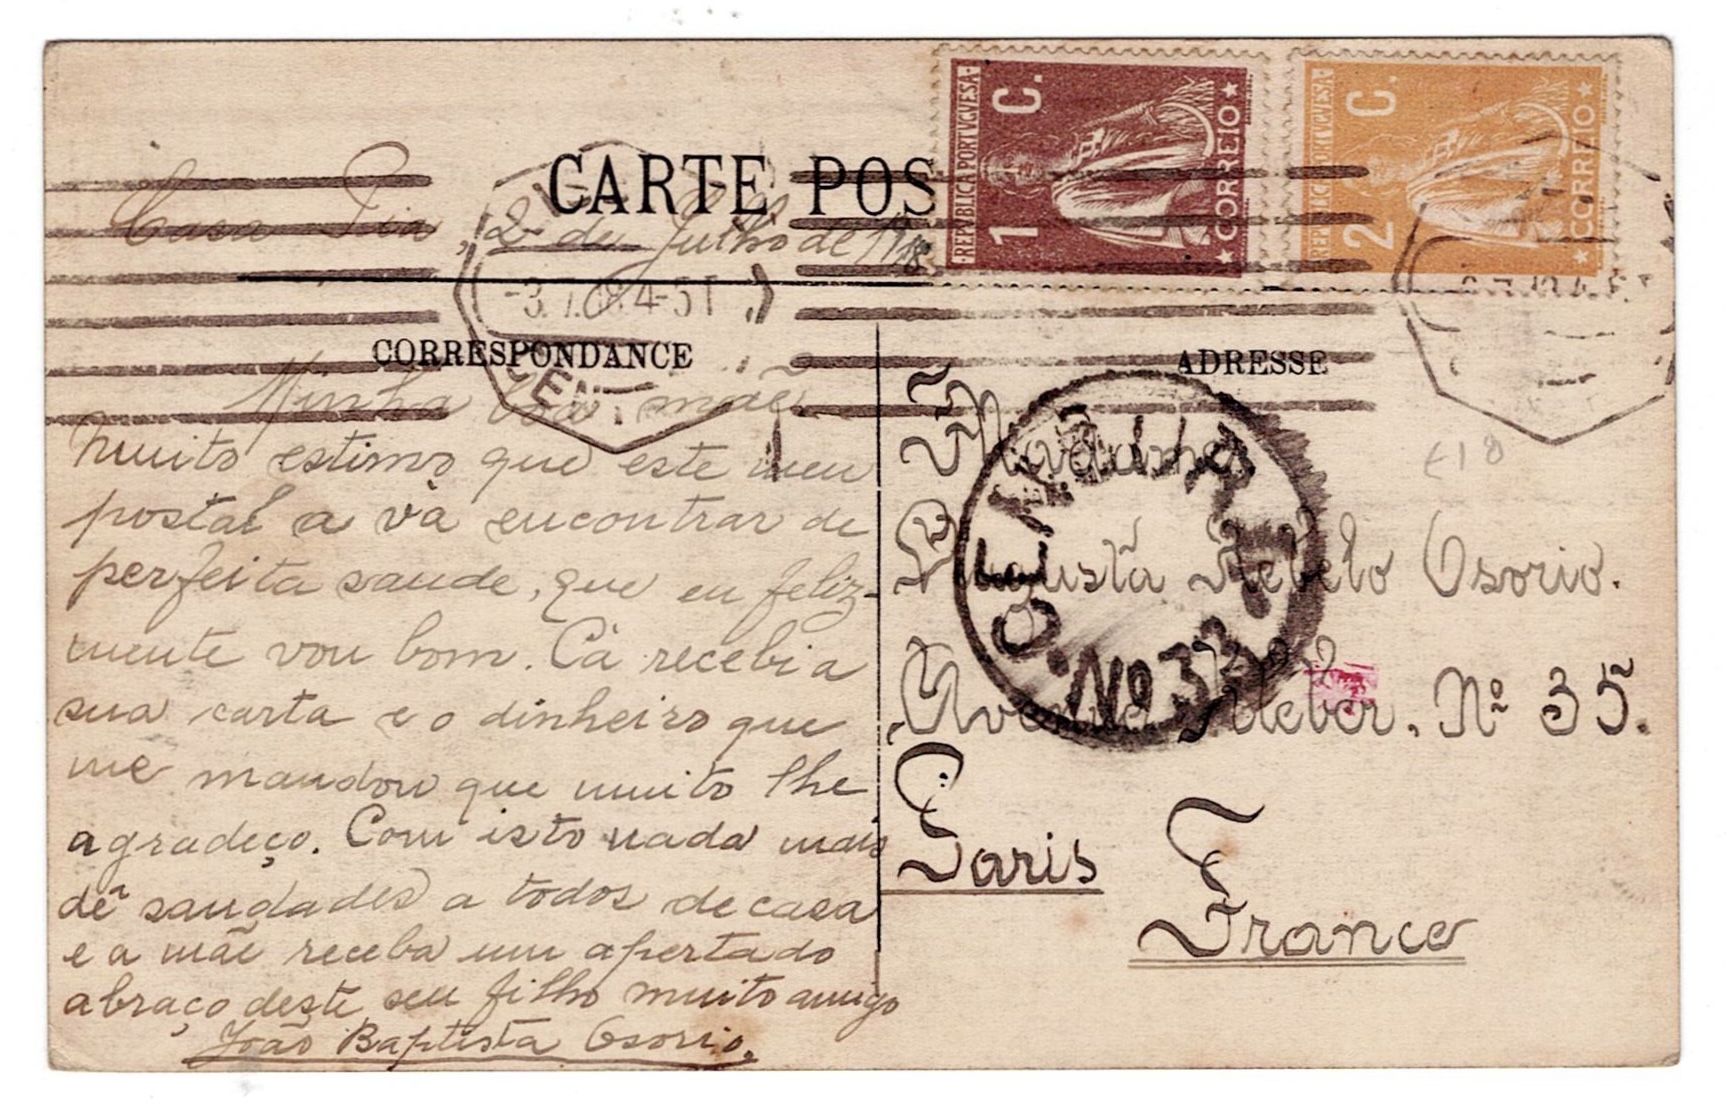 CARTE POS
REPVBLICA PORTVGVESA
1 C.
CORREIO
REPVBLICA PORTVGVESA
2 C.
CORREIO
Casa Pia, 2 de Julho de 1918
-3.7. 4-5T
CENT
CORRESPONDANCE
ADRESSE
Minha boa mãe
Muito estimo que este meu
postal a và encontrar de
perfeita saude, que eu feliz-
mente vou bom. Cà recebi a
sua carta e o dinheiro que
me mandou que muito lhe
agradeço. Com isto nada mais
dê saudades a todos de casa
e a mãe receba um apertado
abraço deste seu filho muito amigo
João Baptista Osorio.
Madame
Augusta Rebelo Osorio.
Avenue Kleber. Nº 35.
Paris
France
CENSURA
Nº 33